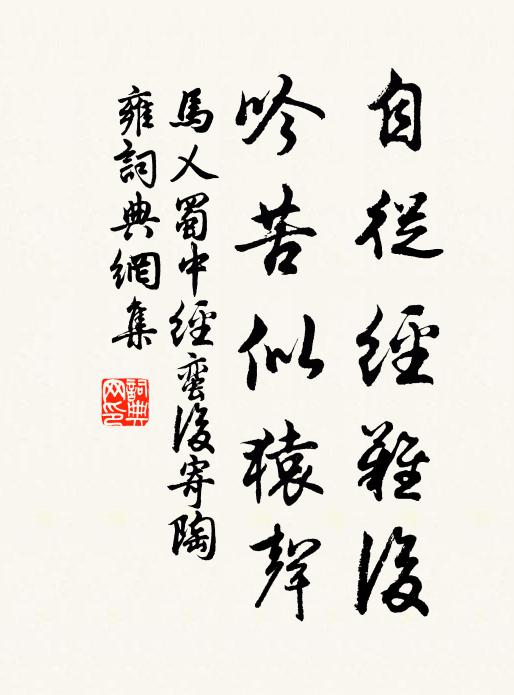 自從經難後
吟苦似猿聲
馬乂蜀中經蠻後寄陶
雍詞典網集
詞典網印